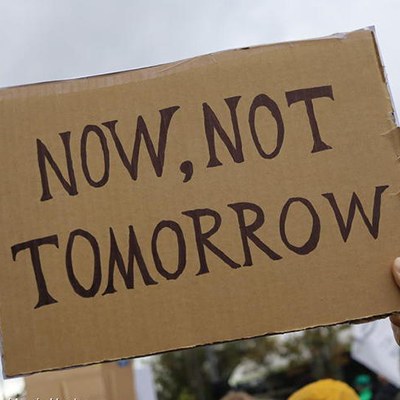 NOW, NOT
TOMORROW